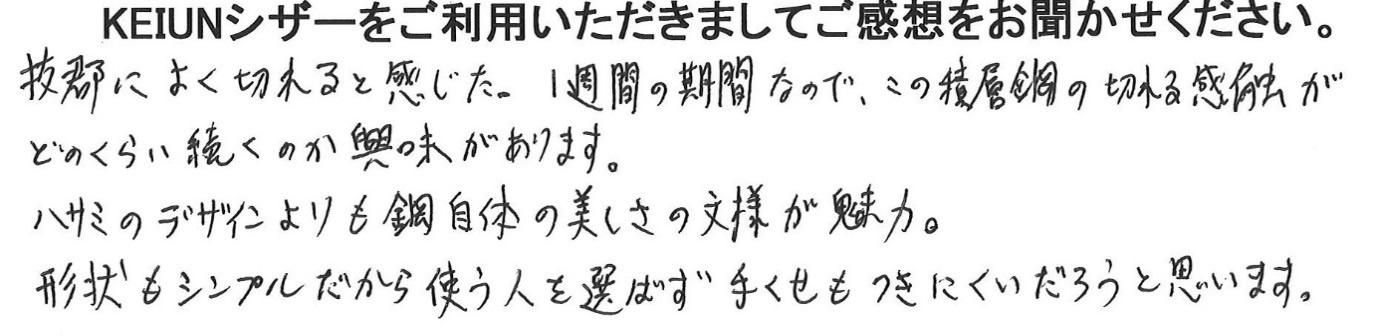 KEIUNシザーをご利用いただきましてご感想をお聞かせください。
抜群によく切れると感じた。1週間の期間なので、この積層鋼の切れる感触が
どのくらい続くのか興味があります。
ハサミのデザインよりも鋼自体の美しさの文様が魅力。
形状もシンプルだから使う人を選ばず手くせもつきにくいだろうと思います。